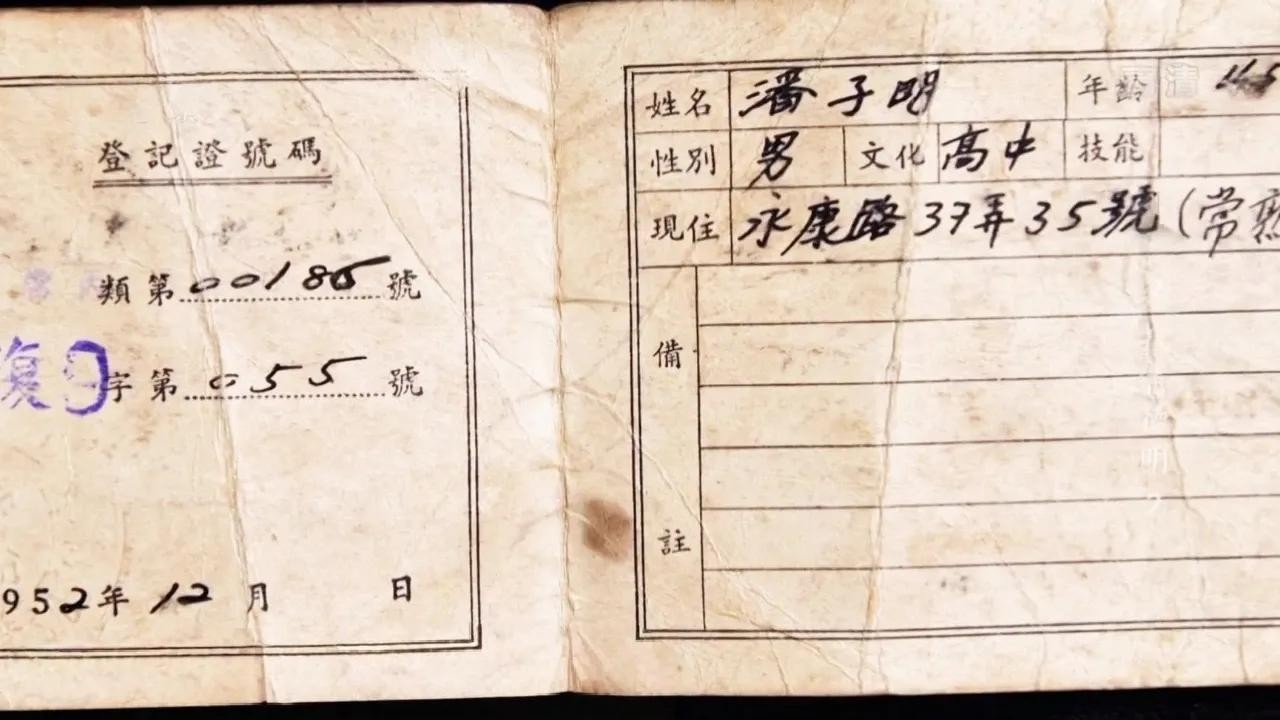 登記證號碼
類第00186號
復 字第055號
952年12月 日
姓名 潘子明 年齡 45
性別 男 文化 高中 技能
現住 永康路37弄35號(常熟
備註